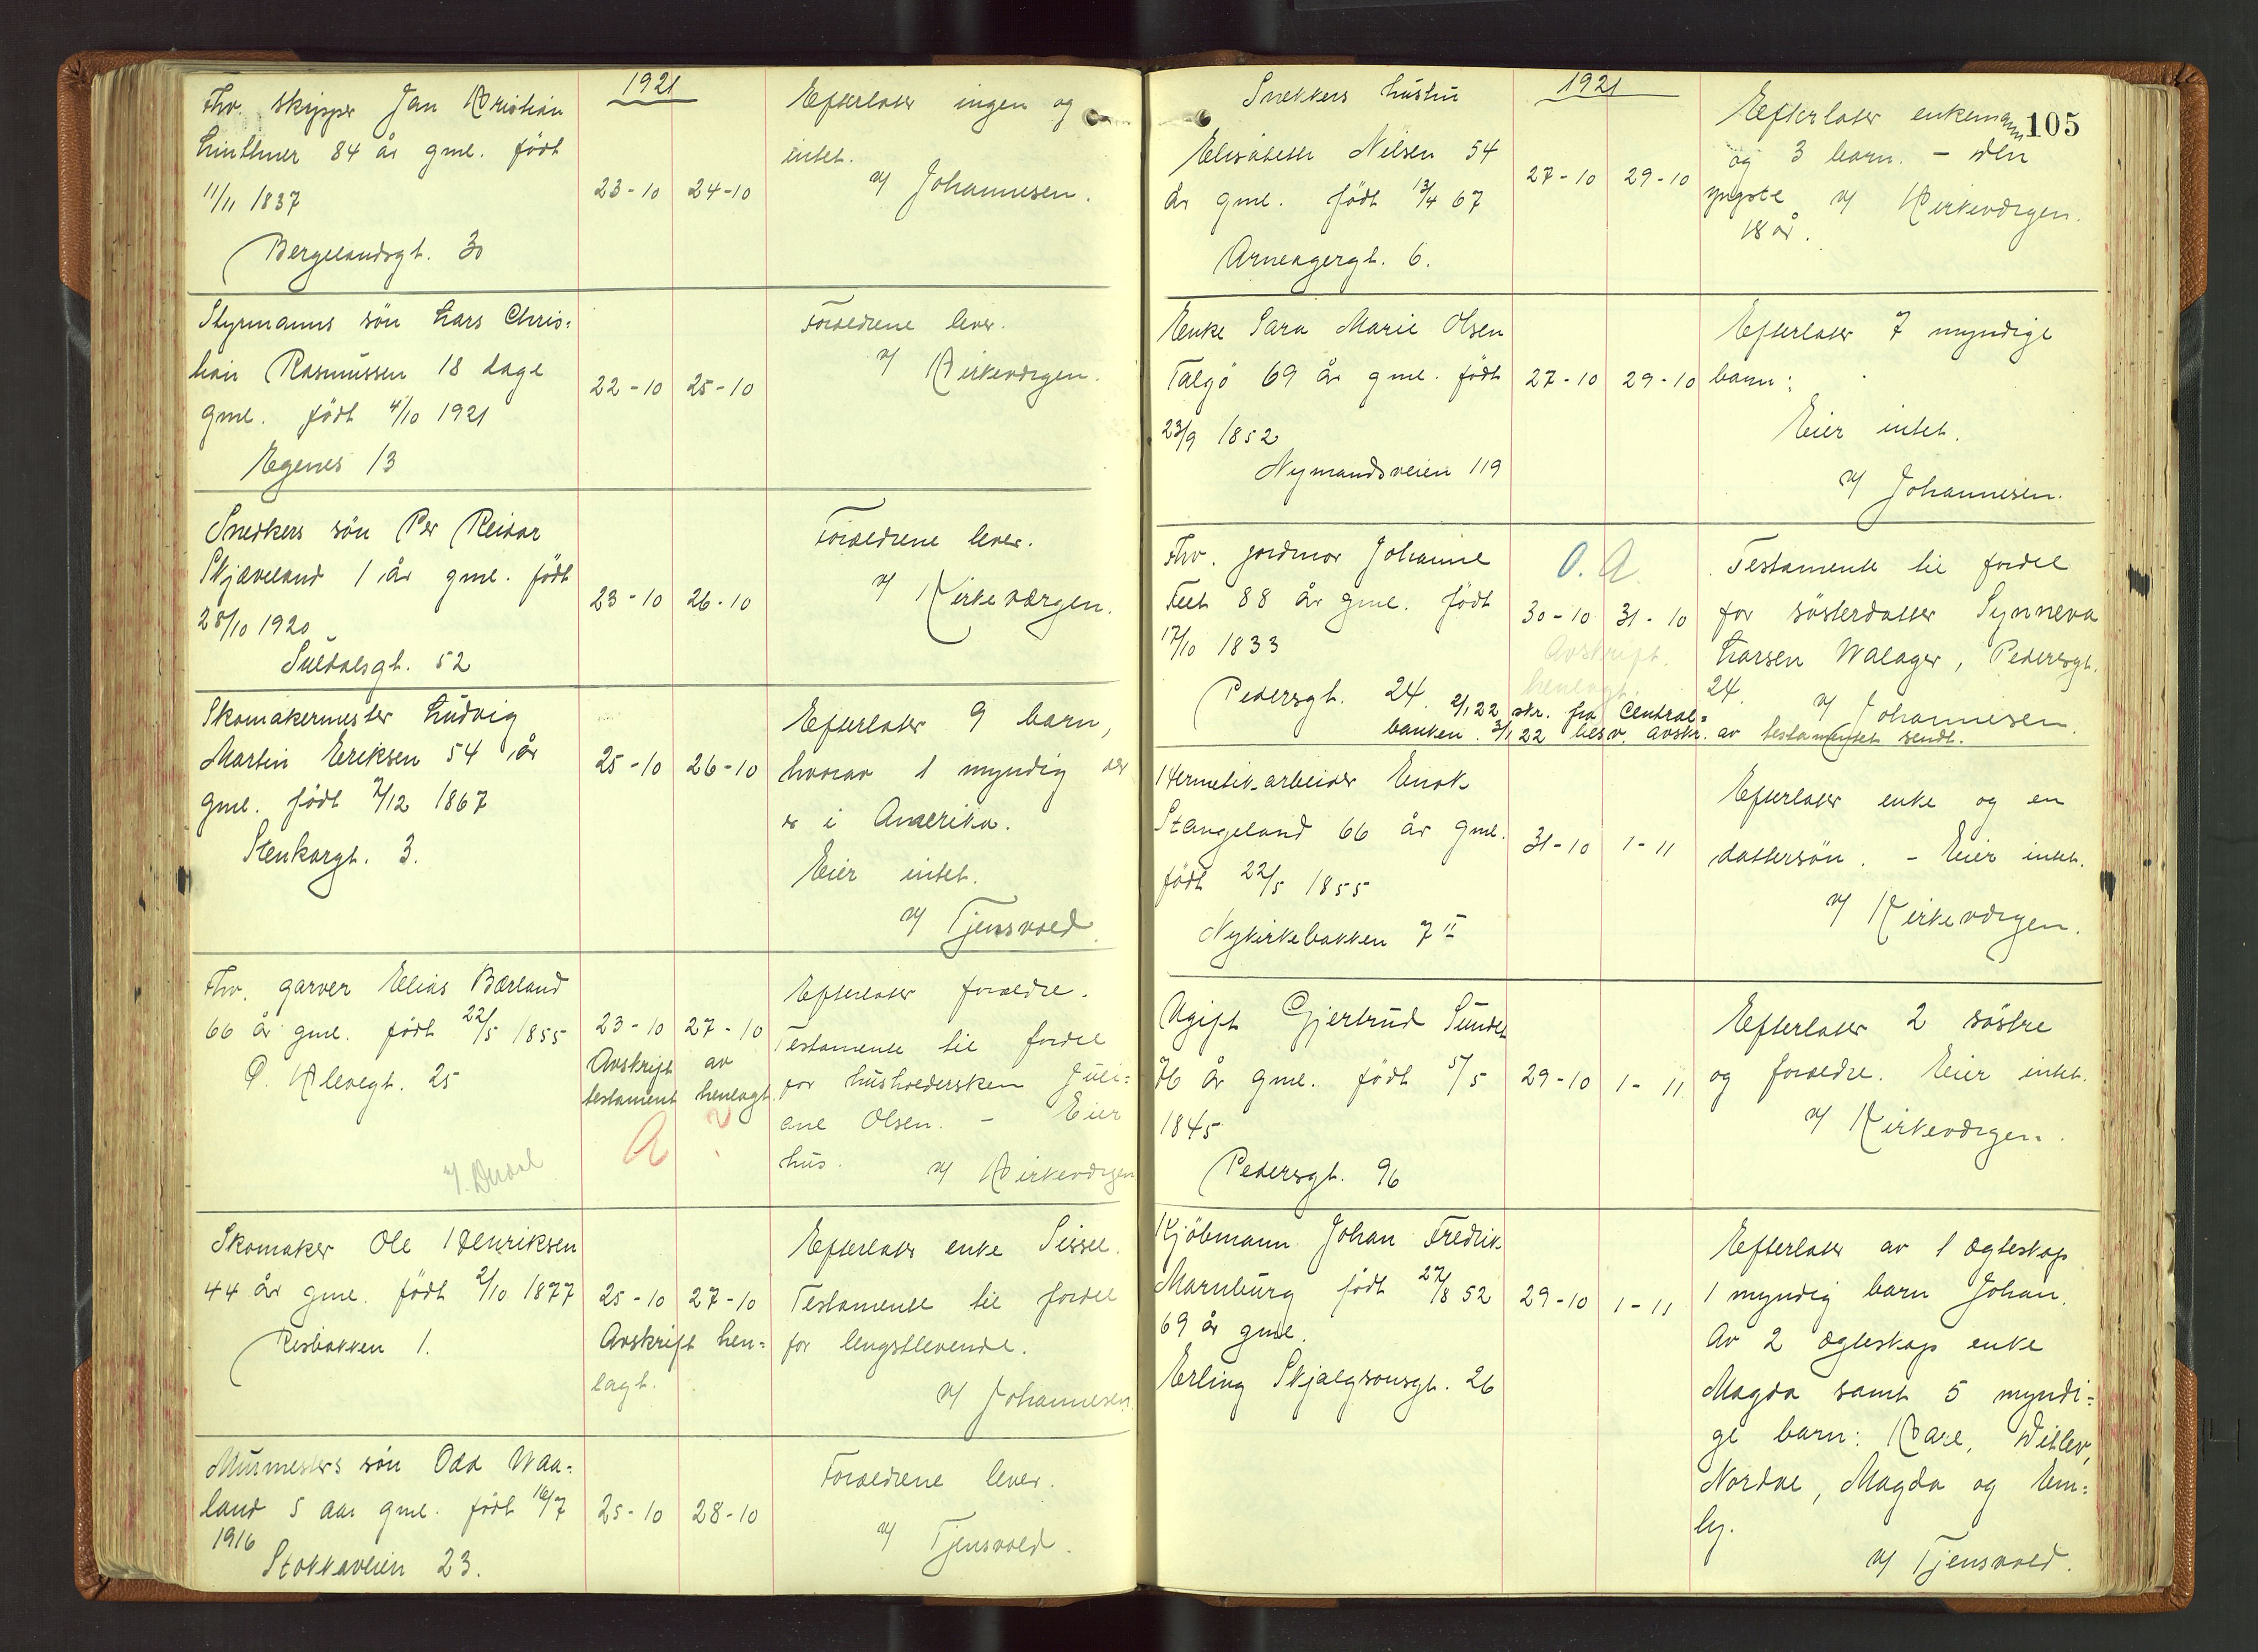 1921
Fhv. skipper Jan Kristian
Linthner 84 år gml. født
11/11 1837
Bergelandsgt. 30
23-10 24-10
Efterlater ingen og
intet.
v/ Johannesen.
Styrmanns søn Lars Chris=
tian Rasmussen 18 dage
gml. født 4/10 1921
Egenes 13
22-10 25-10
Forældrene lever.
v/ Kirkeværgen.
Snedkers søn Per Reidar
Skjæveland 1 år gml. født
28/10 1920
Suldalsgt. 52
23-10 26-10
Forældrene lever.
v/ Kirkeværgen.
Skomakermester Ludvig
Martin Eriksen 54 år
gml. født 7/12 1867
Stenkargt. 3.
25-10 26-10
Efterlater 9 barn,
hvorav 1 myndig der
er i Amerika.
Eier intet.
v/ Tjensvold.
Fhv. garver Elias Bærland
66 år gml. født 22/5 1855
O. Klevegt. 25
23-10 27-10
Avskrift av
testament henlagt.
A
Efterlater foreldre.
Testamente til fordel
for husholdersken Juli=
ane Olsen. - Eier
hus. v/ Kirkeværgen
Skomaker Ole Henriksen
44 år gml. født 2/10 1877
Risbakken 1.
25-10 27-10
Avskrift hen=
lagt.
Efterlater enke Sissel.
Testamente til fordel
for lengstlevende.
v/ Johannesen.
Murmesters søn Odd Waa=
land 5 aar gml. født 16/7
1916
Stokkaveien 23.
25-10 28-10
Forældrene lever.
v/ Tjensvold.
105
1921
Snekkers hustru
Elisabeth Nilsen 54
år gml. født 13/4 67
Arneagergt. 6.
27-10 29-10
Efterlater enkemann
og 3 barn. - den
yngste v/ Kirkeværgen.
18 år.
Enke Sara Marie Olsen
Talgø 69 år gml. født
23/9 1852
Nymandsveien 119
27-10 29-10
Efterlater 7 myndige
barn:
Eier intet.
v/ Johannesen.
Fhv. jordmor Johanne
Feet 88 år gml. født
17/10 1833
Pedersgt. 24.
O. A
30-10 31-10
Avskrift.
henlagt.
Testamente til fordel
for søsterdatter Synneva
Larsen Walager, Pedersgt.
24. v/ Johannesen.
2/1 22 skr. fra Central=
banken. 3/1 22 besv. avskr. av testamentet sendt.
Hermetik-arbeider Enok
Stangeland 66 år gml.
født 22/5 1855
Nykirkebakken 7 II
31-10 1-11
Efterlater enke og en
dattersøn. - Eier intet.
v/ Kirkeværgen.
Ugift Gjertrud Sunde
76 år gml. født 5/5
1845
Pedersgt. 96
29-10 1-11
Efterlater 2 søstre
og foreldre. Eier intet.
v/ Kirkeværgen.
Kjøbmann Johan Fredrik
Marnburg født 27/8 52
69 år gml.
Erling Skjalgsonsgt. 26
29-10 1-11
Efterlater av 1 ægteskap
1 myndig barn Johan.
Av 2 ægteskap enke
Magda samt 5 myndi=
ge barn: Karl, Ditlev,
Nordal, Magda og Em=
ly.
v/ Tjensvold.